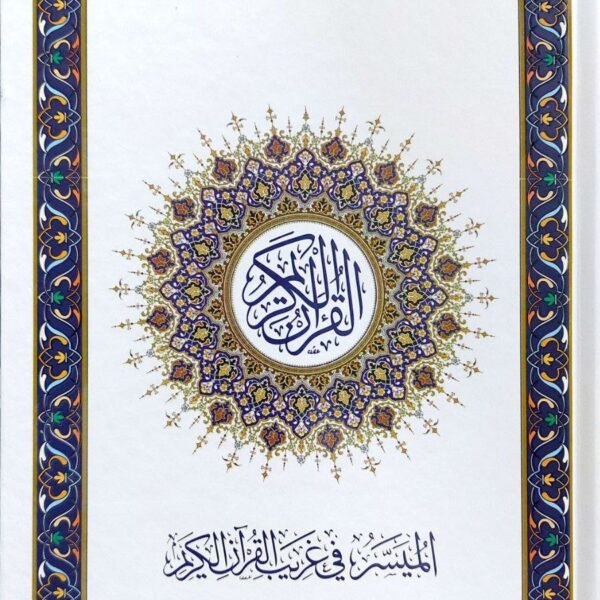 القرآن الكريم
المُيَسَّرُ فِي غَرِيبِ القُرْآنِ الكَرِيمِ